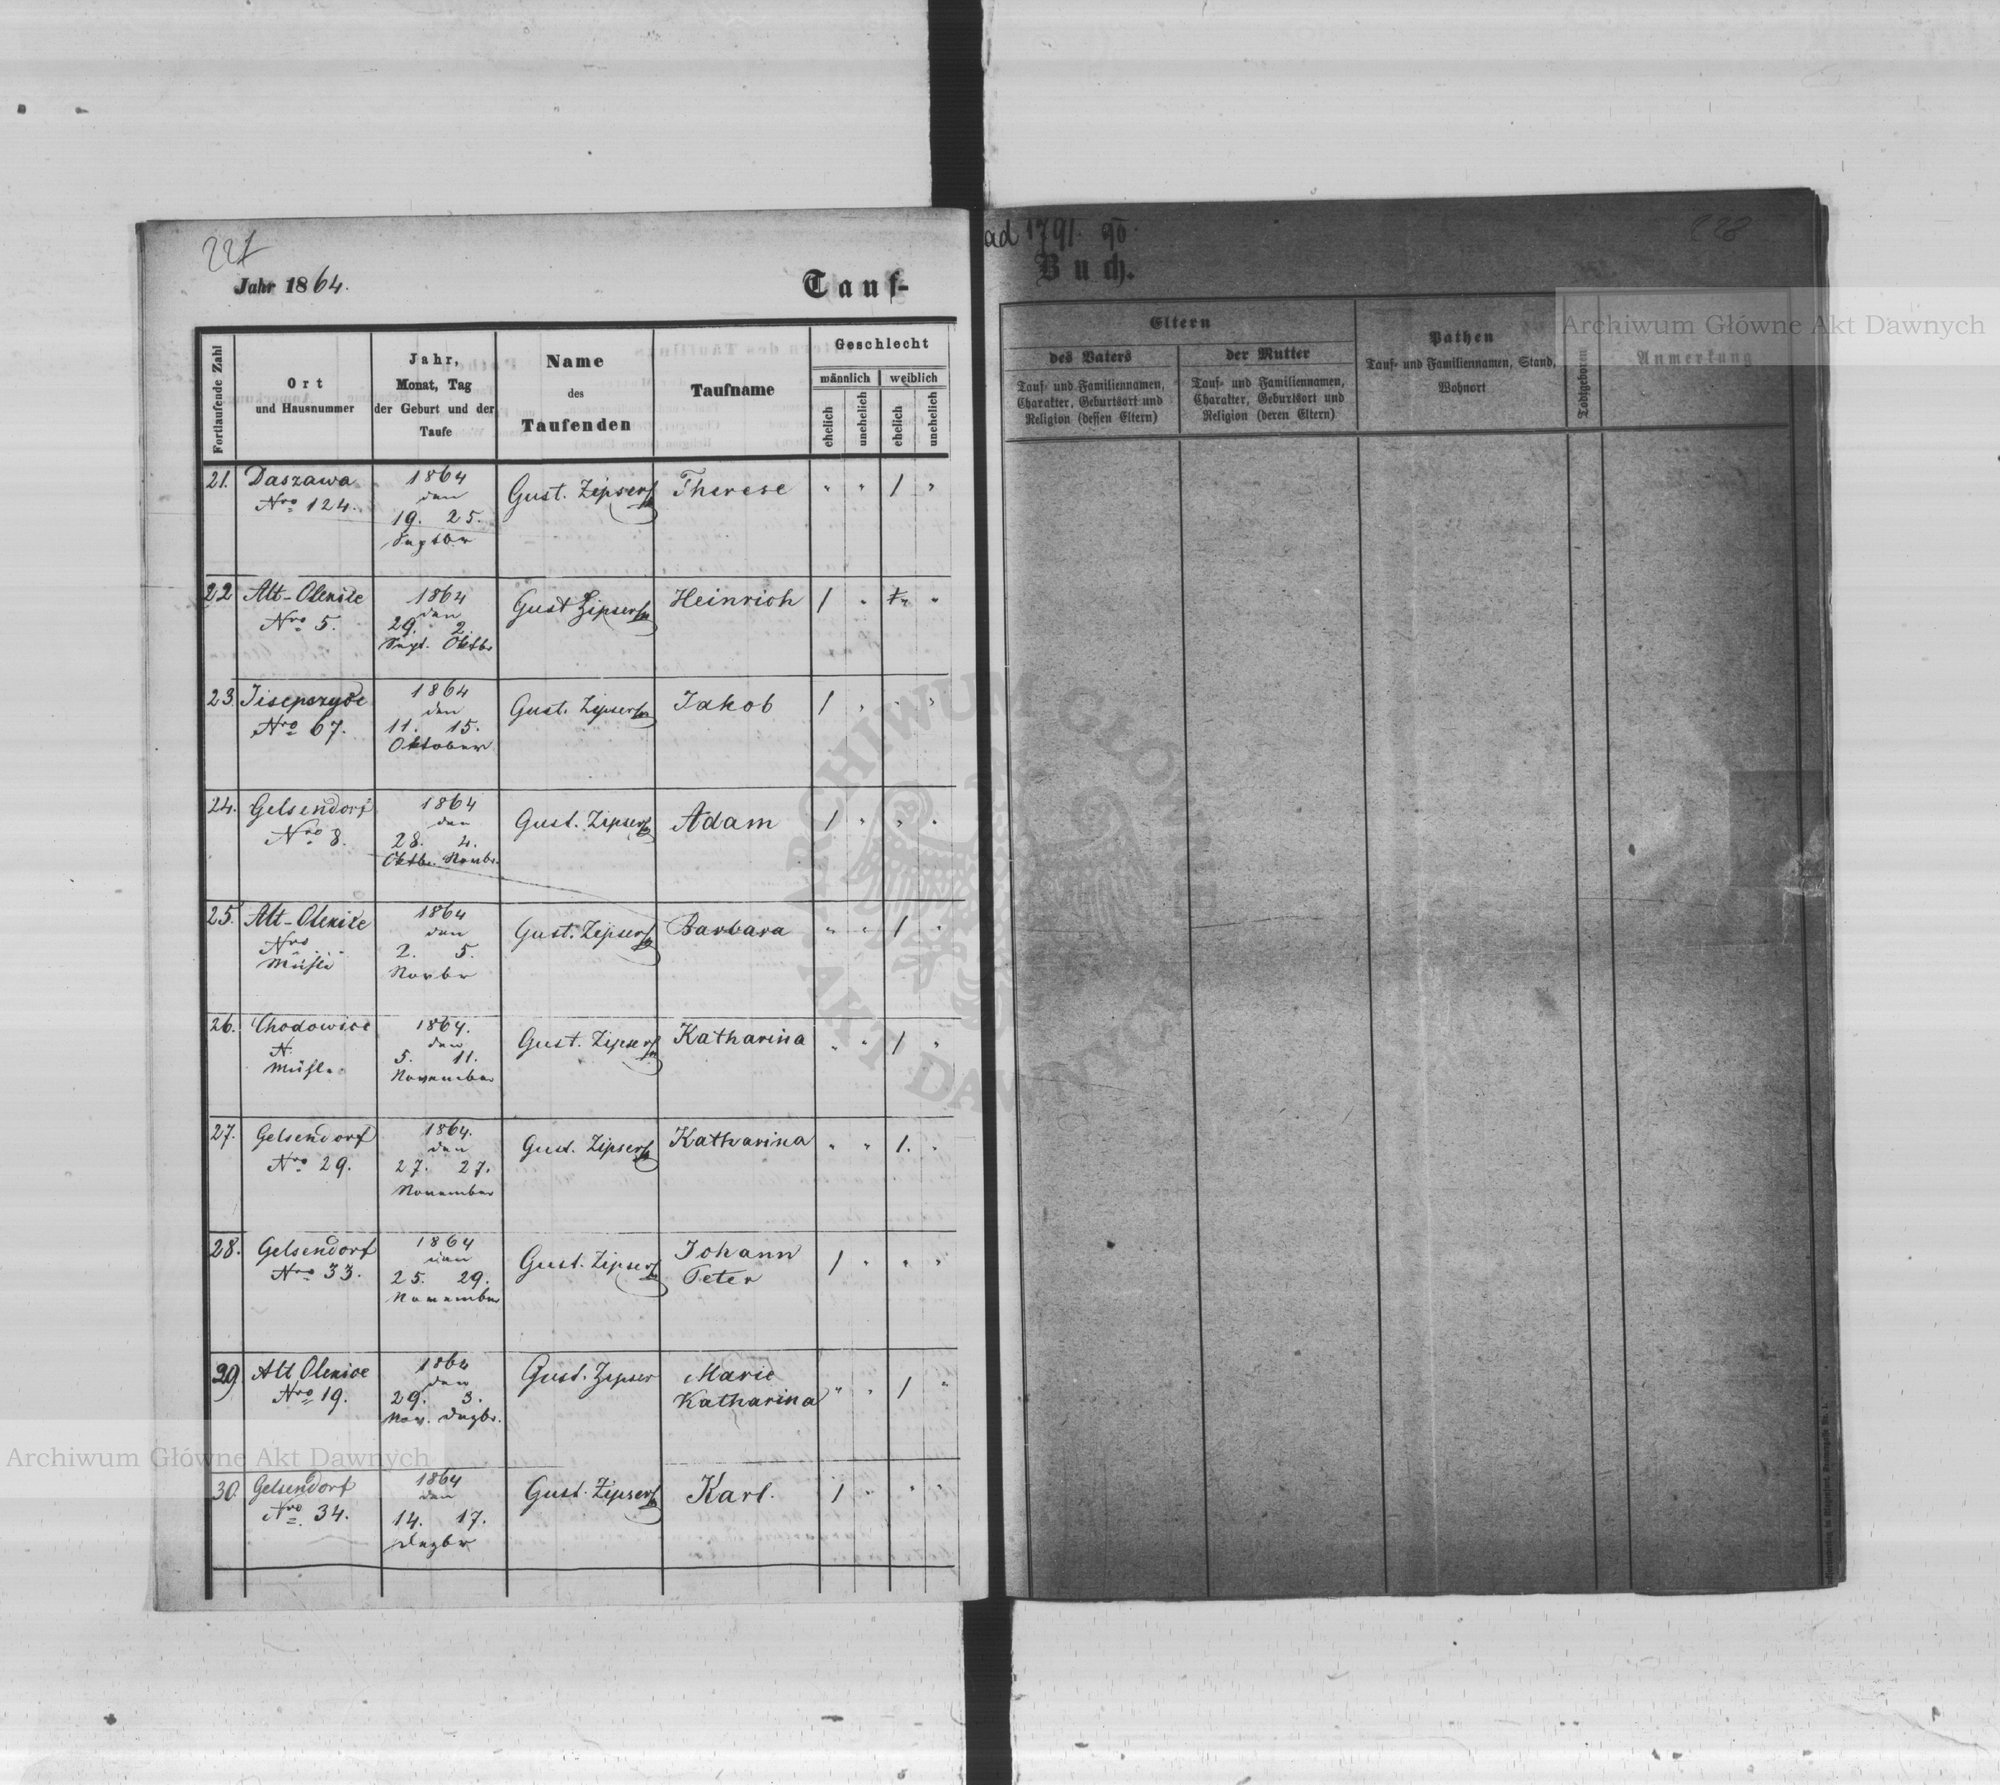 227
Jahr 1864.
Tauf-
Fortlaufende Zahl
Ort
und Hausnummer
Jahr,
Monat, Tag
der Geburt und der
Taufe
Name
des
Taufenden
Taufname
Geschlecht
männlich
weiblich
ehelich
unehelich
ehelich
unehelich
21. Daszawa 1864 Gust. Zipser Therese " " 1 "
Nro 124. den
19. 25.
Septbr
22 Alt-Olexice 1864 Gust Zipser Heinrich 1 " "
Nro 5. den
29. 2.
Sept. Oktbr
23. Jisepczyce 1864 Gust. Zipser Jakob 1 " " "
Nro 67. den
11. 15.
Oktober
24. Gelsendorf 1864 Gust. Zipser Adam 1 " " "
Nro 8. den
28. 4.
Oktb. Novbr.
25. Alt-Olexice 1864 Gust. Zipser Barbara " " 1 "
Nro den
Mühle 2. 5.
Novbr
26. Chodowice 1864. Gust. Zipser Katharina " " 1 "
N. den
Mühle 5. 11.
November
27. Gelsendorf 1864. Gust. Zipser Katharina " " 1. "
Nro 29. den
27. 27.
November
28. Gelsendorf 1864 Gust. Zipser Johann 1 " " "
Nro 33. den Peter
25. 29.
November
29 Alt Olexice 1864 Gust. Zipser Marie " " 1 "
Nro 19. den Katharina
29. 3.
Nov. Dezbr.
30. Gelsendorf 1864 Gust. Zipser Karl. 1 " " "
Nro 34. den
14. 17.
Dezbr
ad 1791. 90.
228
Buch.
Eltern
des Vaters
Tauf- und Familiennamen,
Charakter, Geburtsort und
Religion (dessen Eltern)
der Mutter
Tauf- und Familiennamen,
Charakter, Geburtsort und
Religion (deren Eltern)
Pathen
Tauf- und Familiennamen, Stand,
Wohnort
Todtgeboren
Anmerkung
Archiwum Główne Akt Dawnych
Archiwum Główne Akt Dawnych
ARCHIWUM GŁÓWNE AKT DAWNYCH